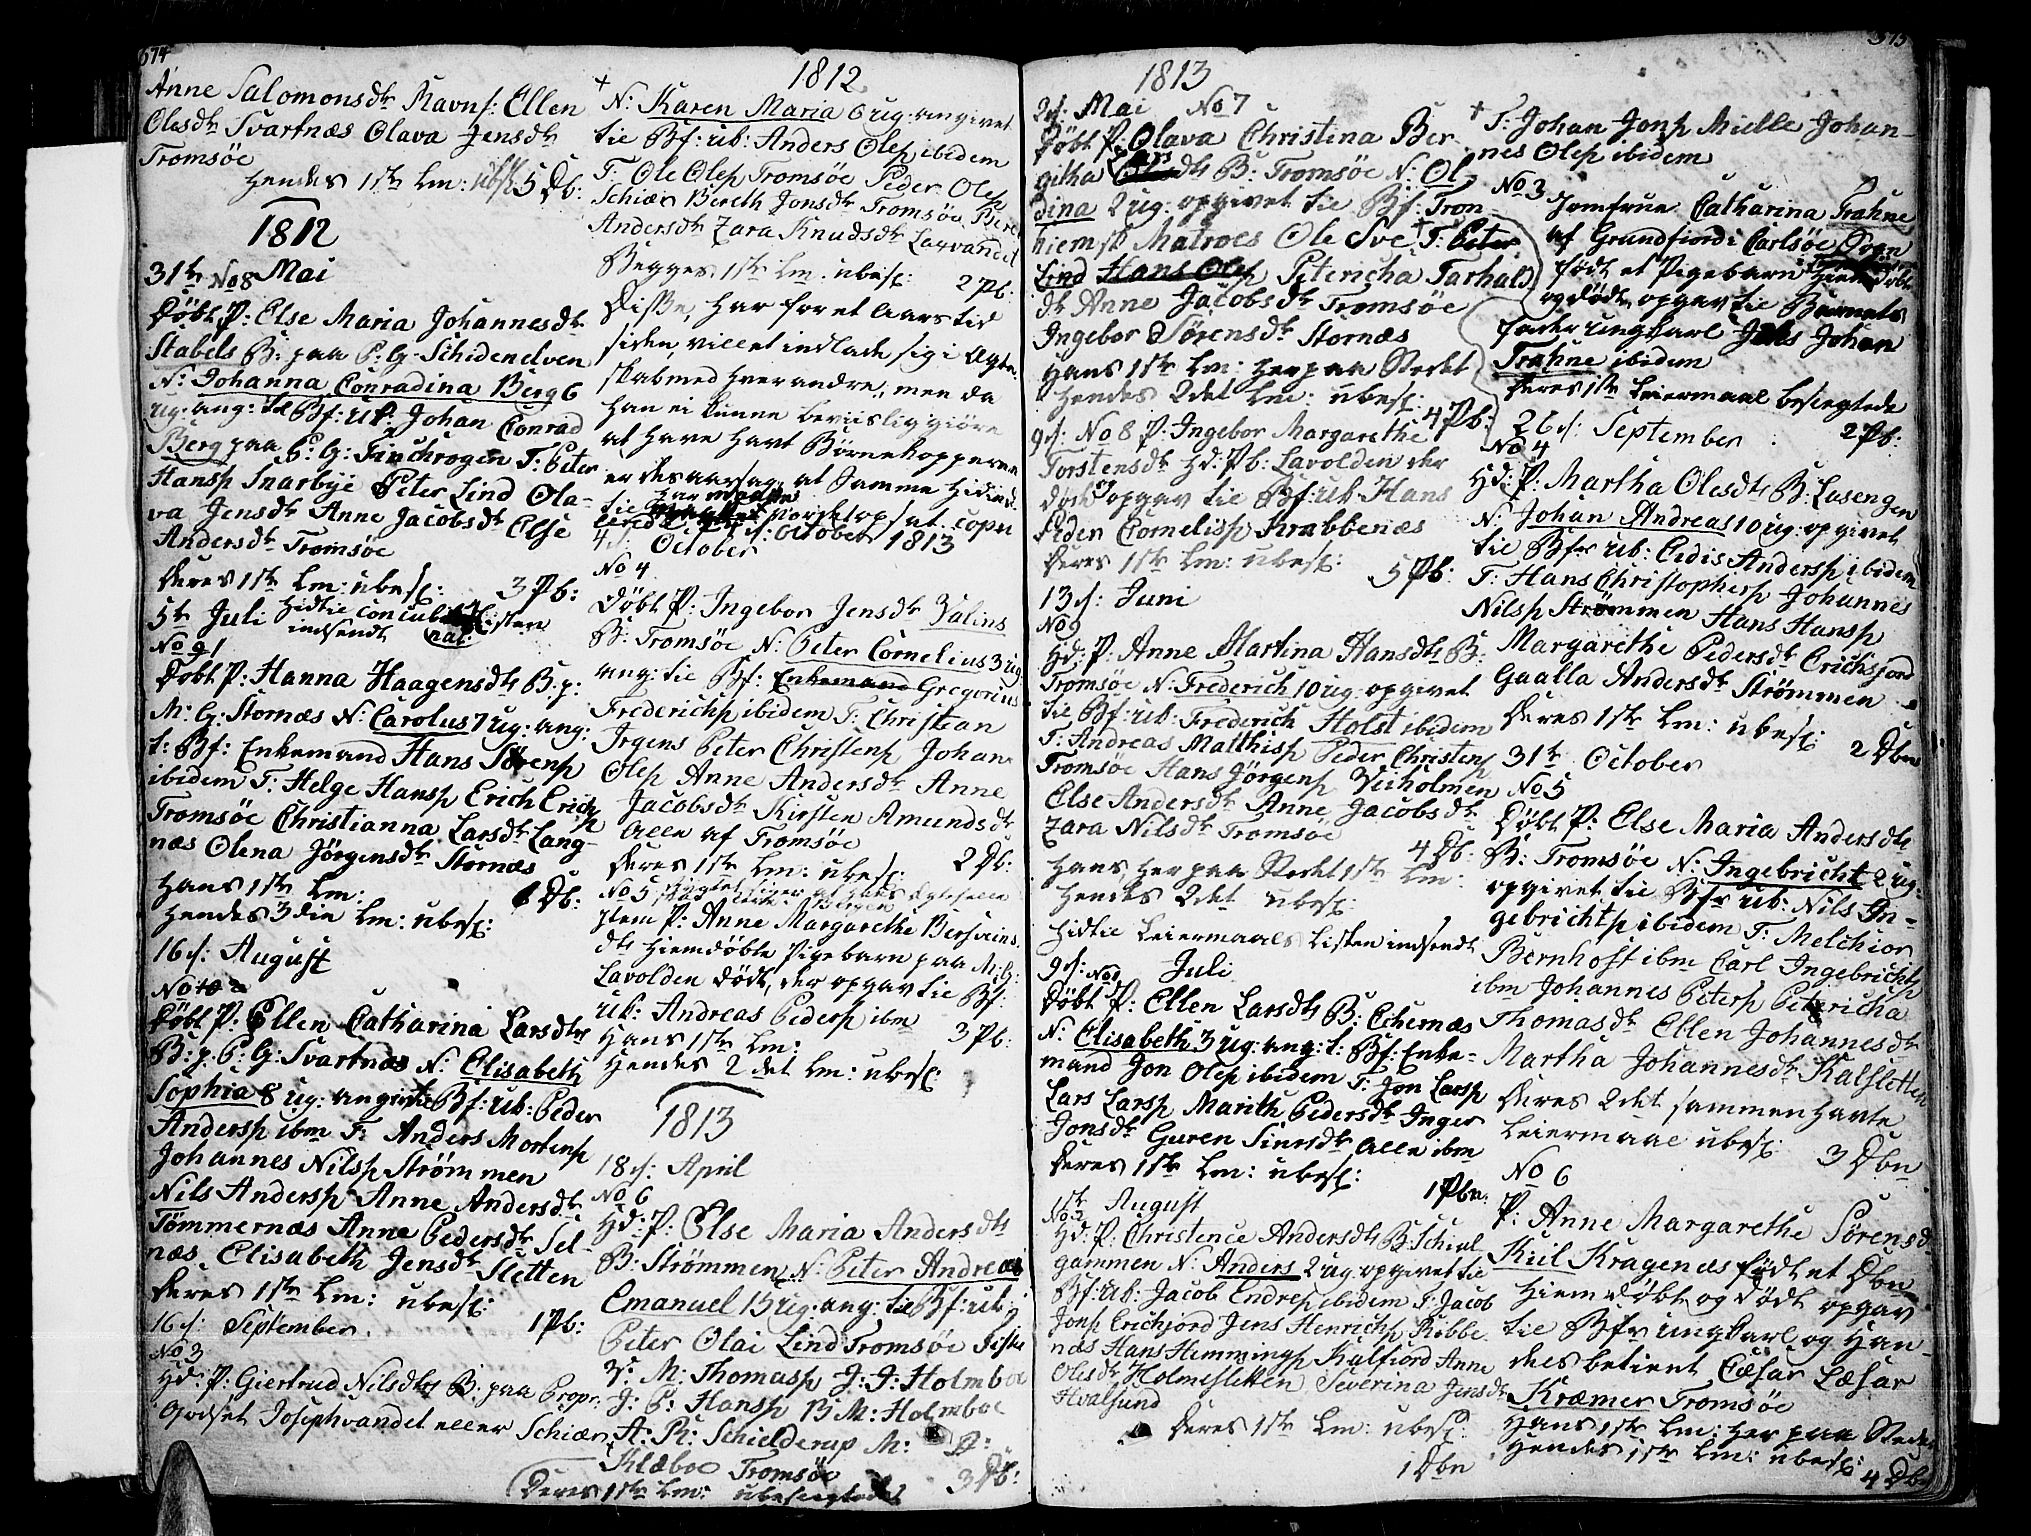 574
Anne Salomonsdtr Ravnf: Ellen
Olesdtr Svartnæs Olava Jensdtr
Tromsöe
Hendes 1ste Lm: ubes: 5 Db:
1812
31te No 8 Mai
Döbt P: Else Maria Johannesdtr
Stabels B: paa P: G: Schidenelven
N: Johanna Conradina Berg 6
ug: ang: til Bf: ub: Johan Conrad
Berg paa P: G: Finchrogen T: Peter
Hansp Snarbye Peter Lind Ola-
va Jensdtr Anne Jacobsdtr Else
Andersdtr Tromsöe
Deres 1ste Lm: ubes: 3 Pb:
5te Juli Hidtil Listen
indsendt
No 1
Döbt P: Hanna Haagensdtr B: p:
M: G: Stornæs N: Carolus 7 ug: ang:
t: Bf: Enkemand Hans Sörensp
ibidem T: Helge Hansp Erich Erichsp
Tromsöe Christianna Larsdtr Lang-
næs Olena Jörgensdtr Stornæs
Hans 1ste Lm: Db:
Hendes 3die Lm: ubes:
16 s: August
Döbt P: Ellen Catharina Larsdtr
B: p: P: G: Svartnæs N: Elisabeth
Sophia 8 ug: angivet til Bf: ub: Peder
Andersp ibm T: Anders Mortensp
Johannes Nilsp Strömmen
Nils Andersp Anne Andersdtr
Tömmernæs Anne Pedersdtr Sel-
næs Elisabeth Jensdtr Sletten
Deres 1ste Lm: ubes: 1 Pb:
16 s: September
No 3
Hd: P: Giertrud Nilsdtr B: paa Propr:
Godset Josephvandet eller Schiær
1812
N: Karen Maria 6 ug: angivet
til Bf: ub: Anders Olep ibidem
T: Ole Olep Tromsöe Peder Olep
Schiær Bereth Jonsdtr Tromsöe
Andersdtr Zara Knudsdtr Laxvandet
Begges 1ste Lm: ubes: 2 Pb:
Disse, har for et Aars tid
siden, villet indlade sig i Ægte-
skab med hverandre, men da
han ei kunne beviisliggiöre
at have havt Börnekopperne
er des aarsag, at Samme hidind-
til
s: October 1813
4 s: October
No 4
Döbt P: Ingebor Jensdtr
B: Tromsöe N: Peter Cornelius 3 ug:
ang: til Bf: Enkemand Gregorius
Frederichsp ibidem T: Christian
Irgens Peter Christensp Johan
Olep Anne Andersdtr Anne
Jacobsdtr Kirsten Amundsdtr
Alle af Tromsöe
Deres 1ste Lm: ubes: 2 Db:
No 5
Item P: Anne Margarethe
dtr Hiemdöbte Pigebarn paa M: G:
Lavolden Död, der opgav til Bf:
ub: Andreas Pedersp ibm
Hans 1ste Lm: 3 Pb:
Hendes 2det Lm: ubes:
1813
18 s: April
No 6
Hd: P: Else Maria Andersdtr
B: Strömmen N: Peter Andreas
Emanuel 15 ug: ang: til Bf: ub:
Peter Olai Lind Tromsöe
M: Thomasp J: J: Holmboe
J: P: Hansp B M: Holmboe
A: R: Schielderup M: D:
Klæboe Tromsöe 3 Db:
Deres 1ste Lm: ubesvigtedes
1813
2 s: Mai No 7
Döbt P: Olava Christina Ber
githa dtr B: Tromsöe N: Ol
dina 2 ug: opgivet til Bf: Tron-
hiemsk Matroes Ole Sve T: Peter
Lind Hans Olep Petericha Tarhalds
dtr Anne Jacobsdtr Tromsöe
Ingebor Sörensdtr Stornæs
Hans 1ste Lm: her paa Stedet
Hendes 2det Lm: ubes: 4 Pb:
9 s: No 8 P: Ingebor Margarethe
Torstensdtr Hd: Pb: Lavolden der
döde, opgav til Bf: ub: Hans
Peder Cornelisp Krabbenæs
Deres 1ste Lm: ubes: 5 Pb:
13 s: Juni
No 9
Hd: P: Anne Martina Hansdtr B:
Tromsöe N: Frederich 10 ug: opgivet
til Bf: ub: Frederich Holst ibidem
T: Andreas Matthisp Peder Christensp
Tromsöe Hans Jörgensp
Else Andersdtr Anne Jacobsdtr
Zara Nilsdtr Tromsöe 4 Db:
Hans, her paa Stedet 1ste Lm:
Hendes 2det ubes:
Hidtil Leiermaals Listen indsendt
9 s: No 1 Juli
Döbt P: Ellen Larsdtr B: Echernæs
N: Elisabeth 3 ug: ang: t: Bf: Enke-
mand Jon Olep ibidem T: Jon Larsp
Lars Larsp Marith Pedersdtr Inger
Jonsdtr Guren Sinesdtr Alle ibm
Deres 1ste Lm: ubes: 1 Pbn.
1ste August
No 2
Hd: P: Christence Andersdtr B:
gammen N: Anders 2 ug: opgivet til
Bf: ub: Jacob Endresp ibidem T: Jacob
Jonsp Erichfjord Jens Henrichsp Robbe
næs Hans Hemmingsp Kalfiord Anne
Olesdtr Holmesletten Severina Jensdtr
Hvalsund
Deres 1ste Lm: ubes:
1 Dbn
T: Johan Jonsp Mielle Johan-
nes Olep ibidem
No 3
Jomfrue Catharina Trahne
af Grundfiord i Carlsöe Sogn
födt et Pigebarn Hiemdöbt
og dödt, opgav til Barnets
Fader ungkarl Jens Johan
Trahne ibidem
Deres 1ste Leiermaal besvegtede
2 Pb:
26 s: September
No 4
Hd: P: Martha Olesdtr B: Lasengen
N: Johan Andreas 10 ug: opgivet
til Bfr ub: Eedis Andersp ibidem
T: Hans Christophersp Johannes
Nilsp Strömmen Hans Hansp
Margarethe Pedersdtr Erichsjord
Gaalla Andersdtr Strömmen
Deres 1ste Lm: ubes: 2 Dbn
31te October
No 5
Döbt P: Else Maria Andersdtr
B: Tromsöe N: Ingebricht 2 ug:
opgivet til Bfr ub: Nils In-
gebrichtsp ibidem T: Melchior
Bernhoft ibm Carl Ingebrichtsp
ibm Johannes Petersp Petericha
Thomasdtr Ellen Johannesdtr
Martha Johannesdtr Kalsletten
Deres 2det sammen havte
Leiermaal ubes: 3 Dbn
No 6
P: Anne Margarethe Sörensdtr
Kiil Kragenæs födt et Dbn
Hiemdöbt og dödt opgav
til Bfr ungkarl og Han-
dels betient Cæsar Læsar
Kræmer Tromsöe
Hans 1ste Lm: her paa Stedet
Hendes 1ste Lm: ubes:
4 Dbn